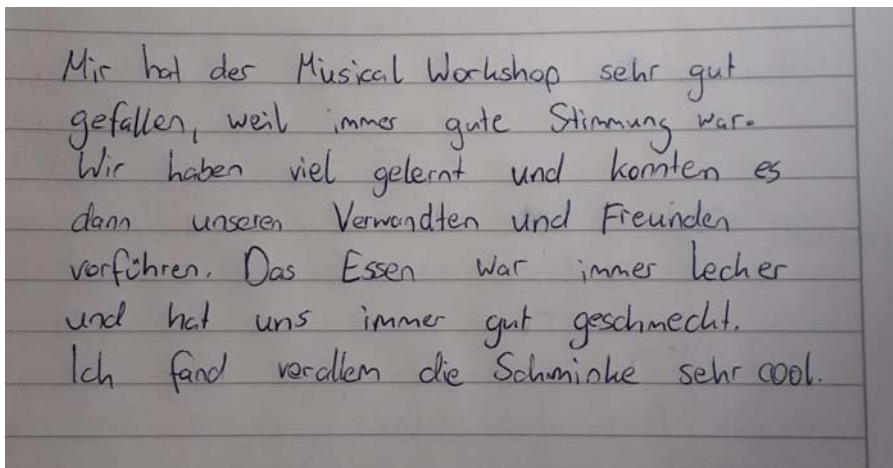 Mir hat der Musical Workshop sehr gut
gefallen, weil immer gute Stimmung war.
Wir haben viel gelernt und konnten es
dann unseren Verwandten und Freunden
vorführen. Das Essen war immer lecher
und hat uns immer gut geschmecht.
Ich fand vorallem die Schminke sehr cool.